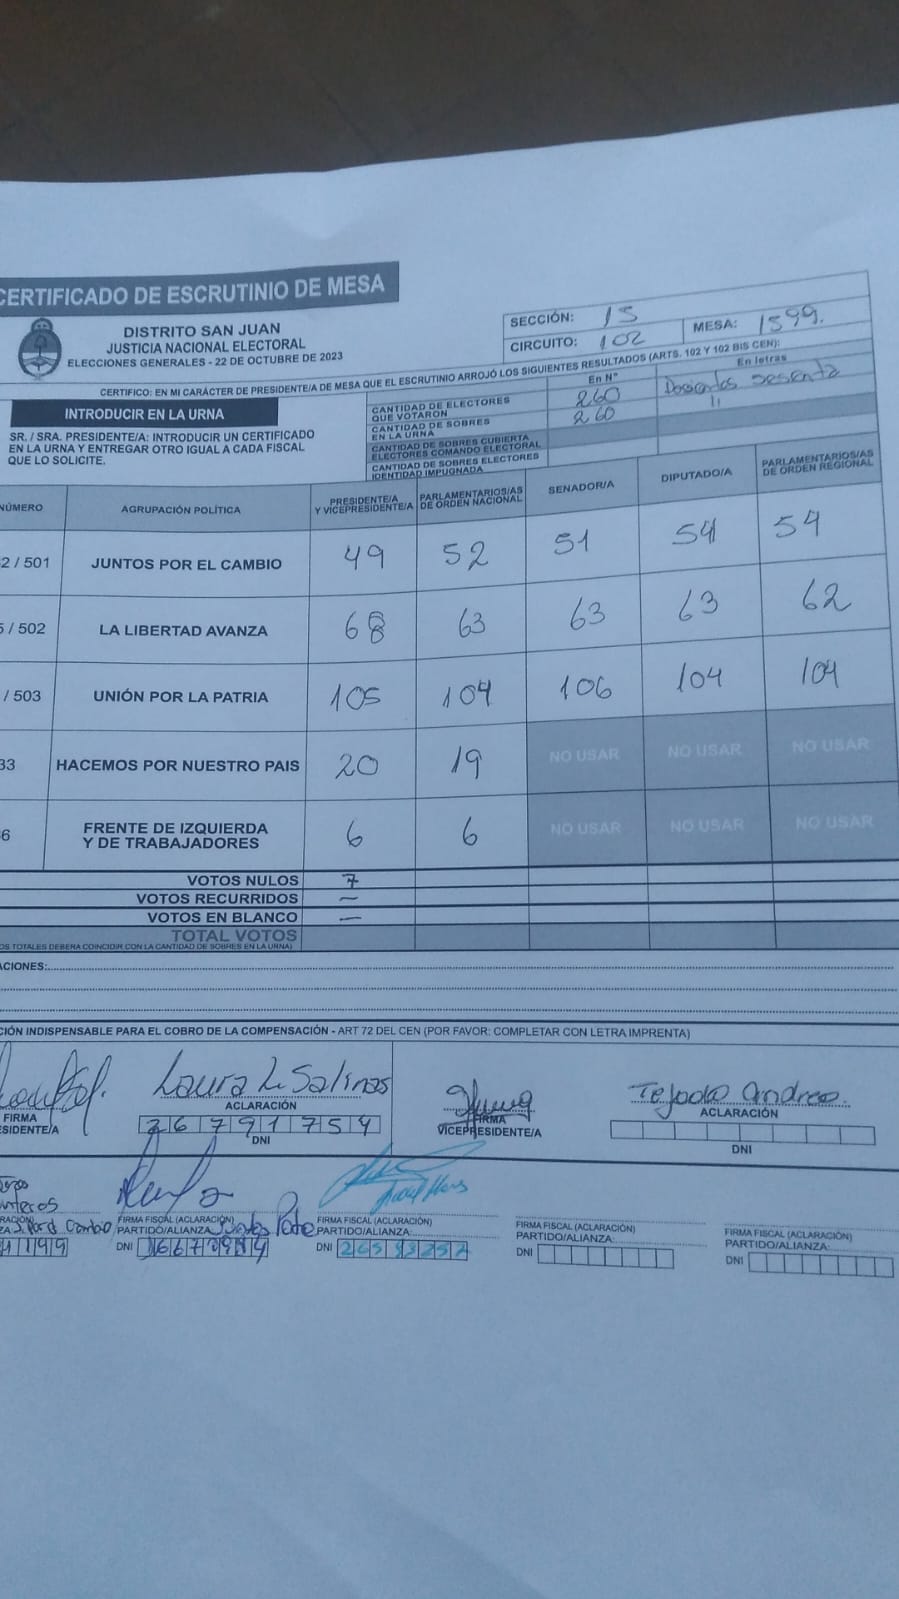 CERTIFICADO DE ESCRUTINIO DE MESA
DISTRITO SAN JUAN
JUSTICIA NACIONAL ELECTORAL
ELECCIONES GENERALES - 22 DE OCTUBRE DE 2023
SECCIÓN: 15
MESA: 1599.
CIRCUITO: 102
CERTIFICO: EN MI CARÁCTER DE PRESIDENTE/A DE MESA QUE EL ESCRUTINIO ARROJÓ LOS SIGUIENTES RESULTADOS (ARTS. 102 Y 102 BIS CEN):
INTRODUCIR EN LA URNA
SR. / SRA. PRESIDENTE/A: INTRODUCIR UN CERTIFICADO
EN LA URNA Y ENTREGAR OTRO IGUAL A CADA FISCAL
QUE LO SOLICITE.
En Nº En letras
CANTIDAD DE ELECTORES
QUE VOTARON 260 Doscientos sesenta
CANTIDAD DE SOBRES
EN LA URNA 260 "
CANTIDAD DE SOBRES CUBIERTA
ELECTORES COMANDO ELECTORAL
CANTIDAD DE SOBRES ELECTORES
IDENTIDAD IMPUGNADA
NÚMERO AGRUPACIÓN POLÍTICA PRESIDENTE/A Y VICEPRESIDENTE/A PARLAMENTARIOS/AS DE ORDEN NACIONAL SENADOR/A DIPUTADO/A PARLAMENTARIOS/AS DE ORDEN REGIONAL
2 / 501 JUNTOS POR EL CAMBIO 49 52 51 54 54
/ 502 LA LIBERTAD AVANZA 68 63 63 63 62
/ 503 UNIÓN POR LA PATRIA 105 104 106 104 104
33 HACEMOS POR NUESTRO PAIS 20 19 NO USAR NO USAR NO USAR
6 FRENTE DE IZQUIERDA Y DE TRABAJADORES 6 6 NO USAR NO USAR NO USAR
VOTOS NULOS 7
VOTOS RECURRIDOS —
VOTOS EN BLANCO —
TOTAL VOTOS
OS TOTALES DEBERA COINCIDIR CON LA CANTIDAD DE SOBRES EN LA URNA)
ACIONES:
CIÓN INDISPENSABLE PARA EL COBRO DE LA COMPENSACIÓN - ART 72 DEL CEN (POR FAVOR: COMPLETAR CON LETRA IMPRENTA)
Laura L Salinas
Tejada Andrea.
FIRMA
SIDENTE/A
ACLARACIÓN
26791754
DNI
FIRMA
VICEPRESIDENTE/A
ACLARACIÓN
DNI
FIRMA FISCAL (ACLARACIÓN)
PARTIDO/ALIANZA:
DNI
FIRMA FISCAL (ACLARACIÓN)
PARTIDO/ALIANZA:
DNI
FIRMA FISCAL (ACLARACIÓN)
PARTIDO/ALIANZA:
DNI
FIRMA FISCAL (ACLARACIÓN)
PARTIDO/ALIANZA:
DNI